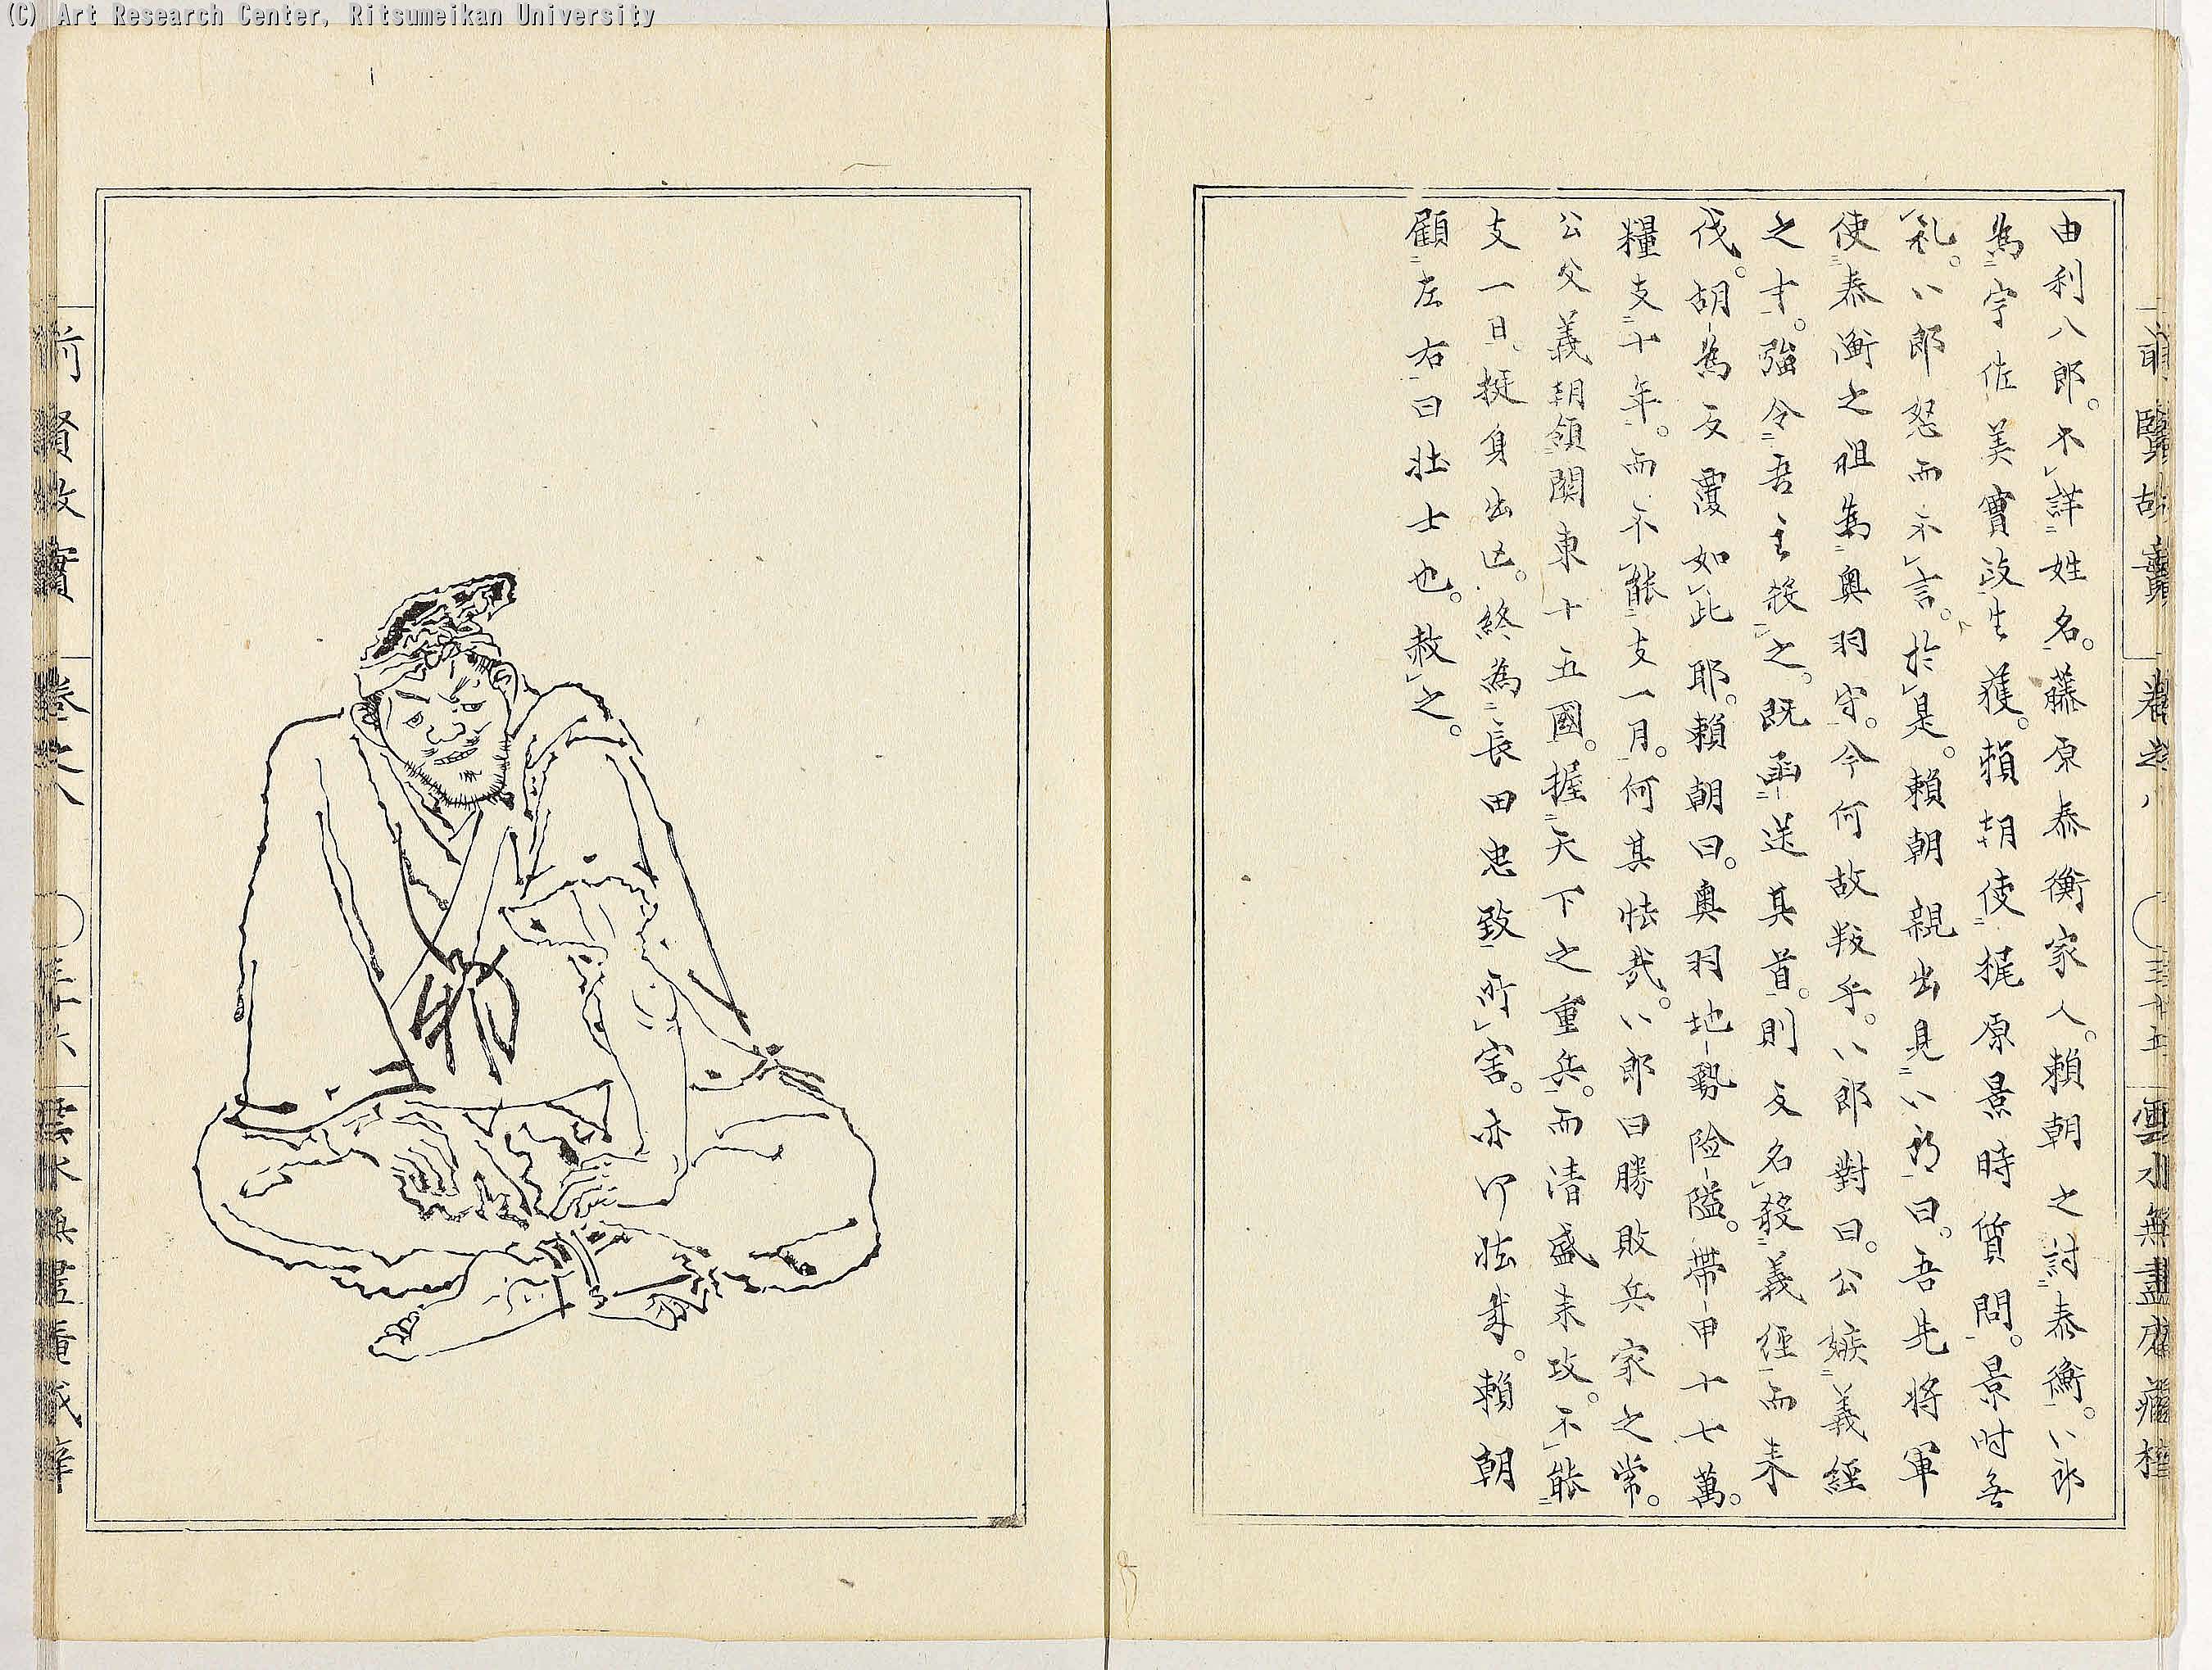 (C) Art Research Center, Ritsumeikan University
由利八郎。不詳姓名。藤原泰衡家人。賴朝之討泰衡。八郎
為宇佐美實政生獲。賴朝使梶原景時質問。景時無
礼。八郎怒而不言。於是。賴朝親出見八郎曰。吾先將軍
使泰衡之祖為奥羽守。今何故叛乎。八郎對曰。公嫉義經
之才。強令吾主殺之。既函送其首。則反名殺義經而来
伐。胡為反覆如此耶。賴朝曰。奥羽地勢险隘。帶甲十七萬。
糧支十年。而不能支一月。何其怯哉。八郎曰勝敗兵家之常。
公父義朝領関東十五國。握天下之重兵。而清盛来攻。不能
支一日。挺身出亡。終為長田忠致所害。亦何怯哉。賴朝
顧左右曰壯士也。赦之。
前賢故實 卷之八 三十五 雲水無盡庵藏梓
前賢故實 卷之八 三十六 雲水無盡庵藏梓